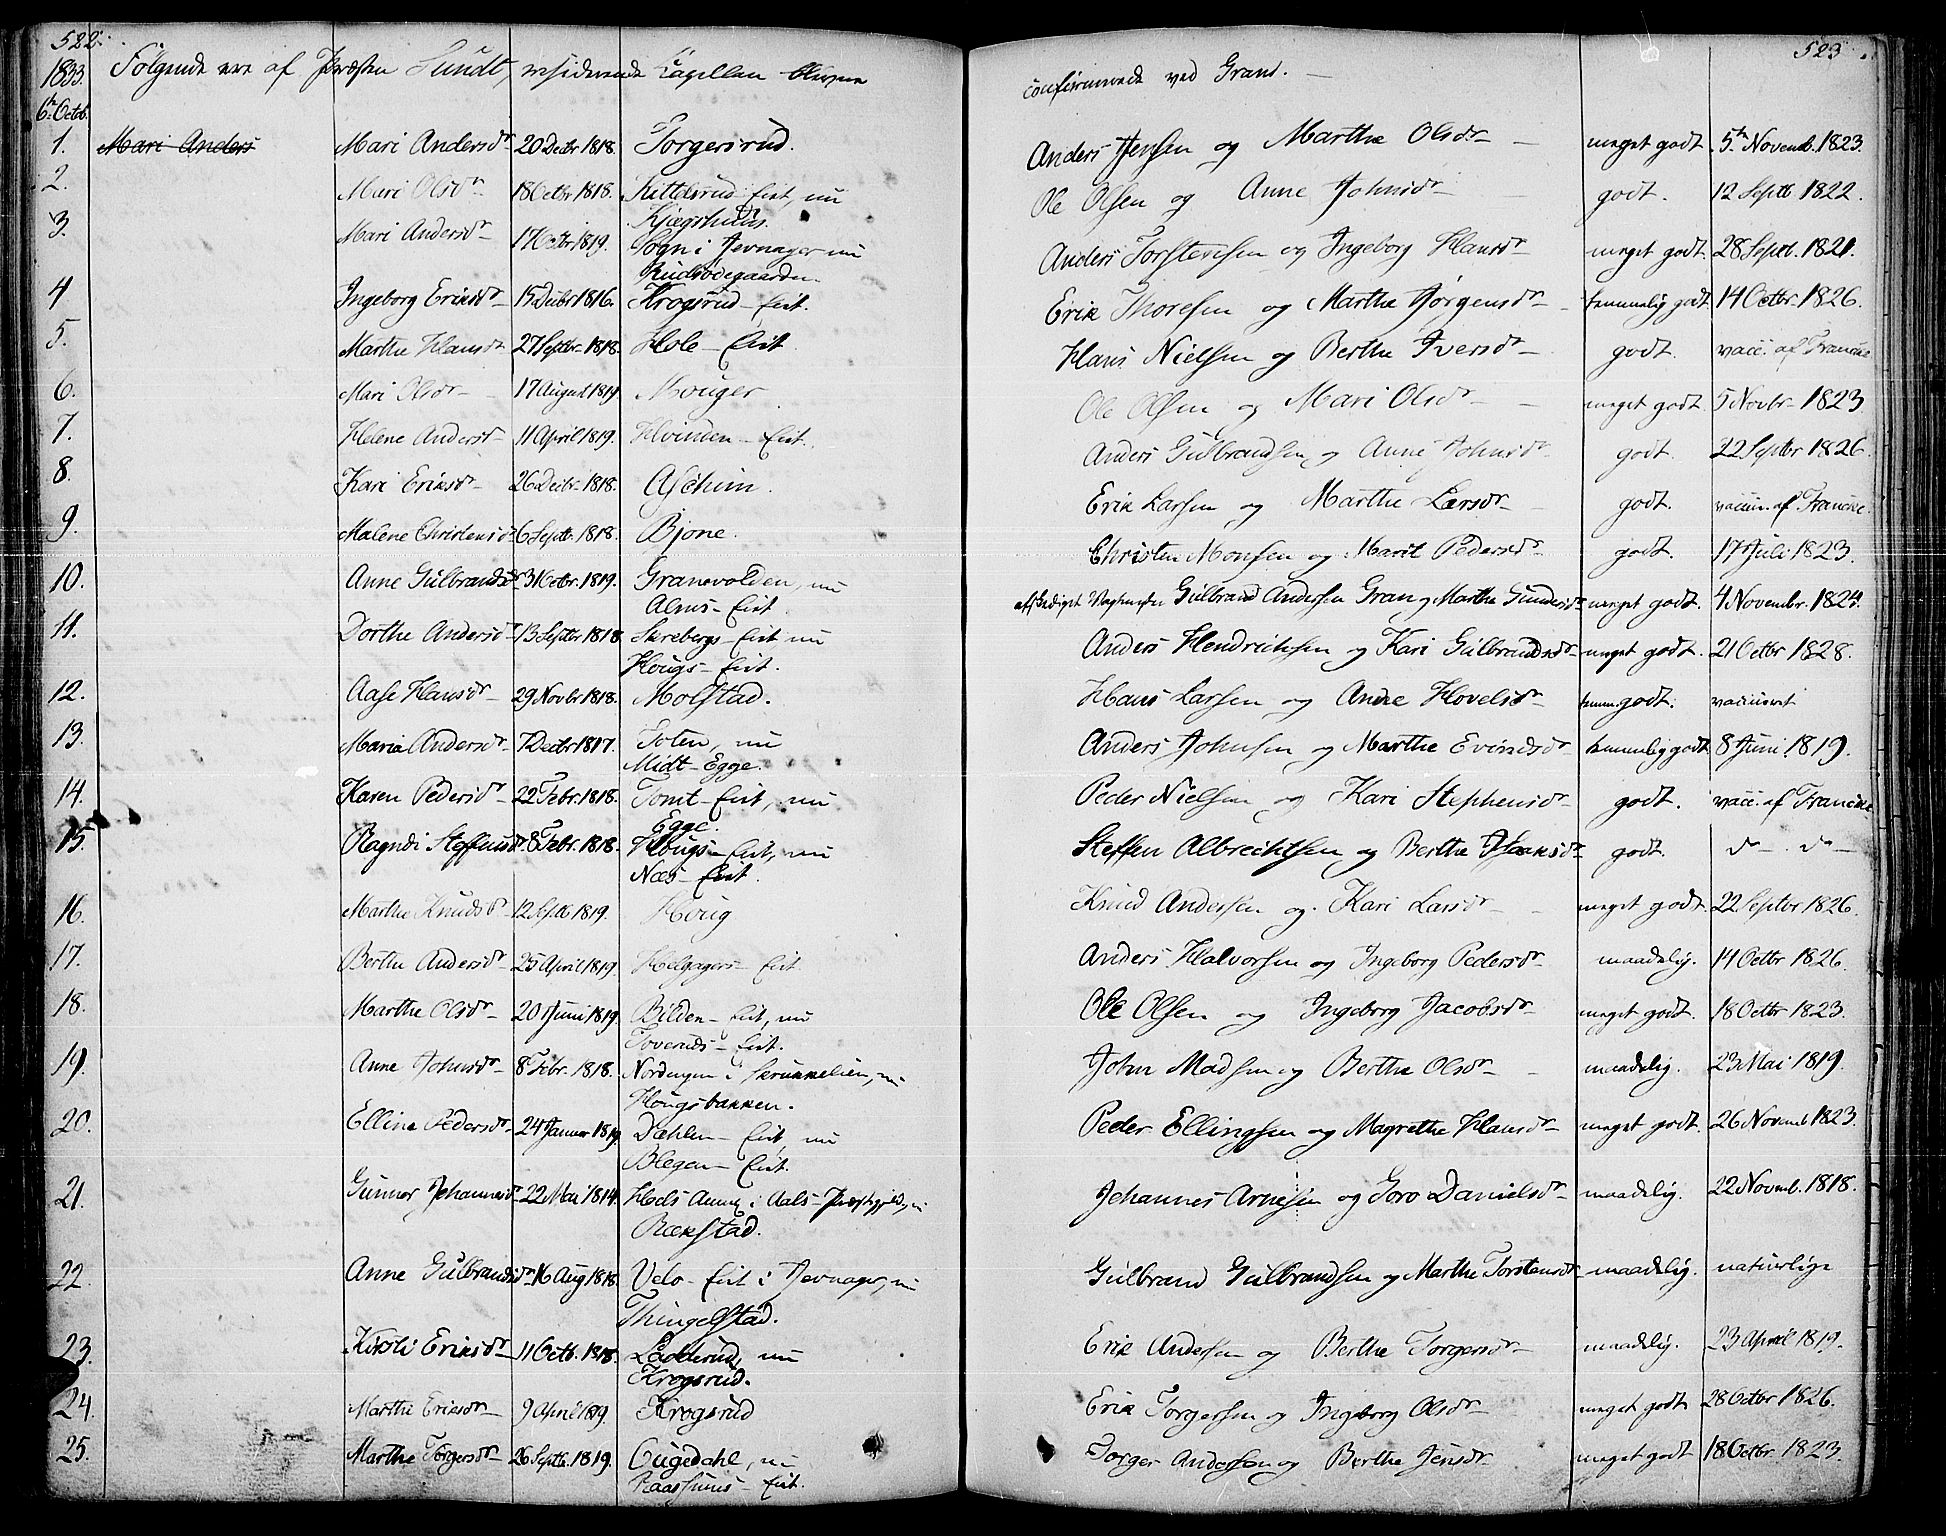 522.
1833. Følgende ere af Præsten Sundt, residerende Capellan blevne
6te Octob.
1. Mari Anders Mari Andersdr 20 Decbr 1818. Torgersrud.
2. Mari Olsdr 18 Octbr 1818. Kittelsrud Eiet, nu
Kjægshuus.
3. Mari Andersdr 17 Octbr 1819. Sogn i Jevnager nu
Ruds
4 Ingeborg Eriksdr 15 Decbr 1816. Krogsrud Eiet.
5. Marthe Hansdr 27 Septbr 1818. Hole Eiet
6. Mari Olsdr 17 August 1819 Mouger
7. Helene Andersdr 11 April 1819. Hvinden Eiet.
8. Kari Eriksdr 26 Decbr 1818. Aschim.
9. Malene Christensdr 6 Septb. 1818. Bjone.
10. Anne Gulbrandsdr 31 Octbr. 1819. Granevolden, nu
Alms Eiet.
11. Dorthe Andersdr 13 Septbr 1818 Skrebergs Eiet nu
Hougs Eiet.
12. Aase Hansdr 29 Novbr 1818. Molstad.
13. Maria Andersdr 7 Decbr 1817. Toten, nu
Midt-Egge.
14. Karen Pedersdr 22 Febr. 1818. Tomt Eiet, nu
Egge.
15. Ragndi Steffensdr 8 Febr. 1818. Hougs Eiet, nu
Næs Eiet.
16. Marthe Knudsdr 12 Septb 1819. Houg
17. Berthe Andersdr 25 April 1819. Helgagers Eiet
18. Marthe Olsdr 20 Juni 1819. Bilden Eiet, nu
Toveruds Eiet.
19. Anne Johnsdr 8 Febr. 1818. Nordengen i Skrukkelien, nu
Hougsbakken.
20. Elline Pedersdr 24 Januar 1819. Dæhlen Eiet, nu
Blegen Eiet.
21. Gunnor Johannesdr 22 Mai 1814. Hoels Annex i Aals Præstegjeld, nu
Rækstad.
22. Anne Gulbrandsdr 16 Aug 1818. Velo Eiet i Jevnager, nu
Thingelstad.
23. Kirsti Eriksdr 11 Octb. 1818. nu
Krogsrud.
24. Marthe Eriksdr 9 April 1819. Krogsrud
25. Marthe Torgersdr 26 Septb. 1819. nu
Raassums Eiet.
523.
confirmerede ved Gran.
Anders Jensen og Marthe Olsdr meget godt. 5te Novemb. 1823.
Ole Olsen og Anne Johnsdr godt. 12 Septb 1822.
Anders Torstensen og Ingeborg Hansdr meget godt. 28 Septb. 1821.
Erik Thoresen og Marthe Jørgensdr temmelig godt. 14 Octbr. 1826.
Hans Nielsen og Berthe Iversdr godt. vacc. af Francke
Ole Olsen og Mari Olsdr meget godt 5 Novbr 1823
Anders Gulbrandsen og Anne Johnsdr godt. 22 Septbr 1826.
Erik Larsen og Marthe Larsdr godt. vaccin. af Francke
Christen Monsen og Marit Pedersdr godt. 17 Juli 1823.
afskediget Vagtmester Gulbrand Andersen Gran og Marthe Gundersdr meget godt. 4 Novembr. 1824.
Anders Hendrichsen og Kari Gulbrandsdr meget godt. 21 Octbr 1828.
Hans Larsen og Andre Hovelsdr temm. godt. vaccineret
Anders Johnsen og Marthe Evindsdr temmelig godt 8 Juni 1819.
Peder Nielsen og Kari Stephensdr godt. vacc. af Francke
Steffen Albrechtsen og Berthe Isaksdr godt. do do
Knud Andersen og Kari Larsdr meget godt. 22 Septbr 1826.
Anders Halvorsen og Ingeborg Pedersdr maadelig. 14 Octbr 1826.
Ole Olsen og Ingeborg Jacobsdr meget godt. 18 Octbr 1823.
John Madsen og Berthe Olsdr maadelig. 23 Mai 1819.
Peder Ellingsen og Magrethe Hansdr meget godt. 26 Novemb 1823.
Johannes Arnesen og Goro Danielsdr maadelig. 22 Novemb. 1818.
Gulbrand Gulbrandsen og Marthe Torstensdr maadelig. naturlige
Erik Andersen og Berthe Torgersdr maadelig. 23 April 1819.
Erik Torgersen og Ingeborg Olsdr meget godt 28 Octbr 1826.
Torger Andersen og Berthe Jensdr meget godt 18 Octbr. 1823.